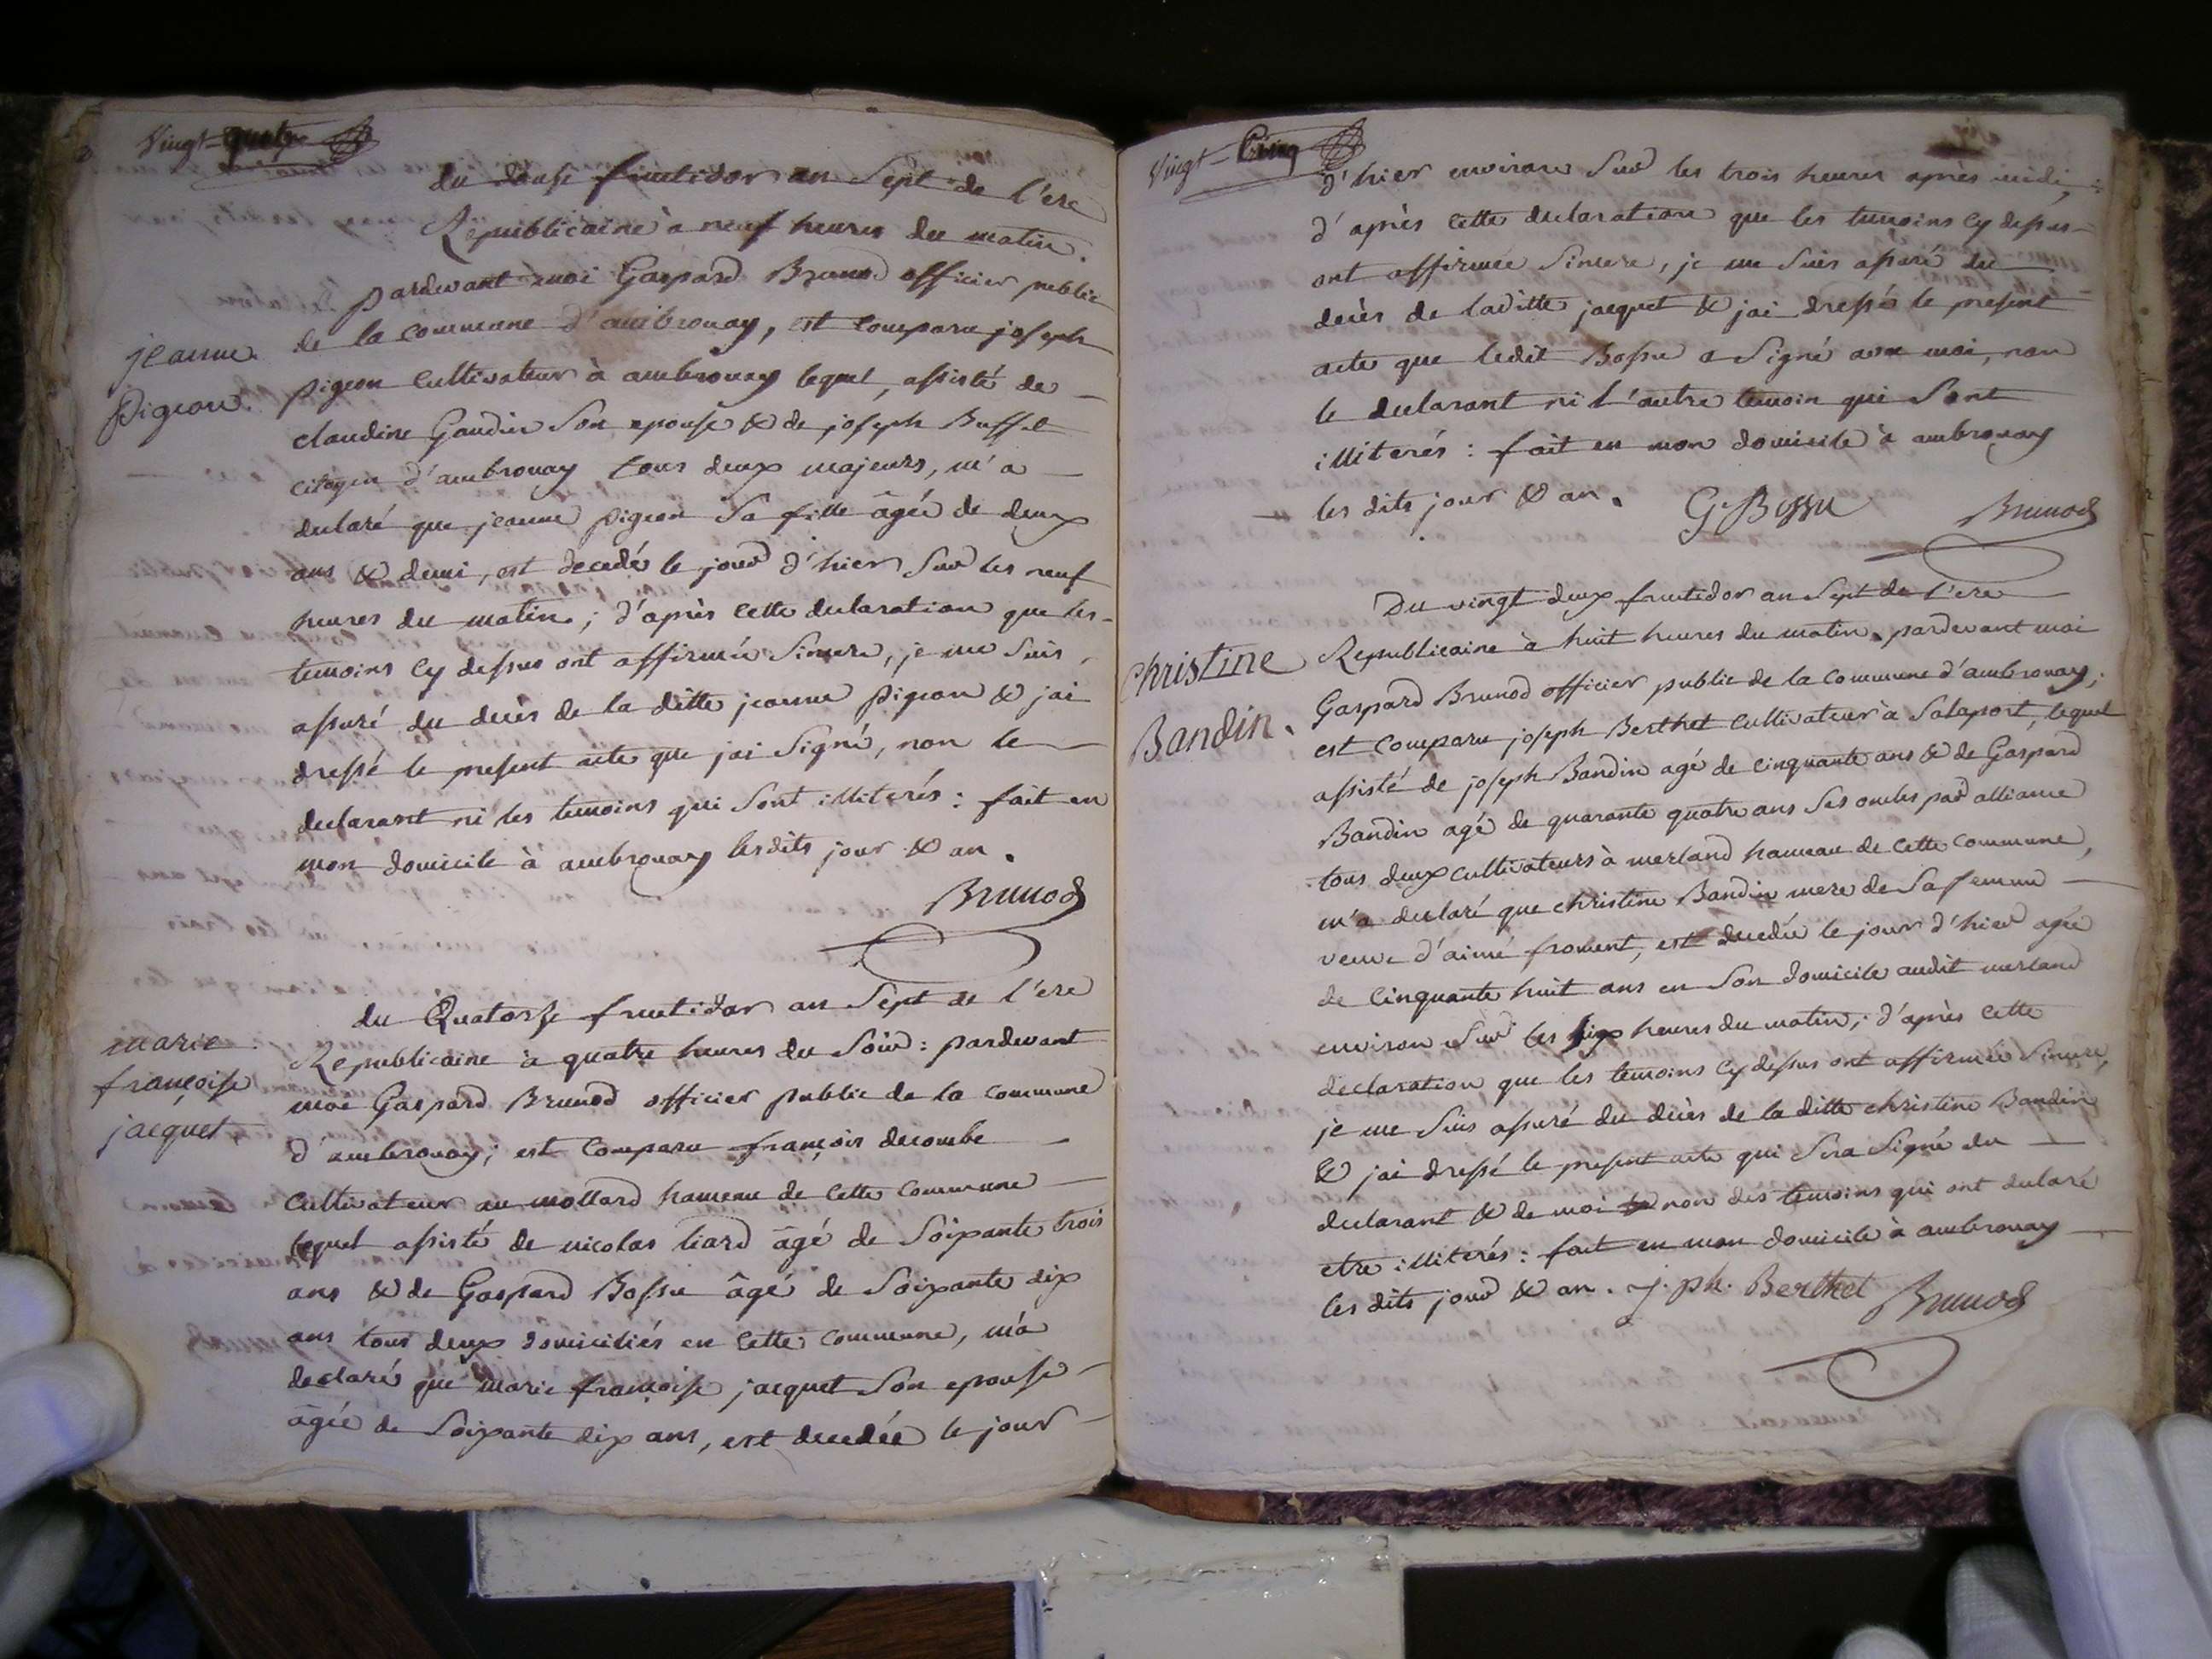 Vingt-quatre
du douse fructidor an Sept de l'ere
Republicaine à neuf heures du matin.
pardevant moi Gaspard Brunod officier public
jeanne pigeon.
de la commune d'ambronay, est comparu joseph
pigeon cultivateur à ambronay lequel, assisté de
claudine Gaudin Son epouse & de joseph Buffet
citoyen d'ambronay tous deux majeurs, m'a
declaré que jeanne pigeon Sa fille âgée de deux
ans & demi, est decedée le jour d'hier Sur les neuf
heures du matin; d'après cette declaration que les
temoins cy dessus ont affirmée Sincere, je me Suis
assuré du decès de la ditte jeanne pigeon & jai
dressé le present acte que jai Signé, non le
declarant ni les temoins qui Sont illiterés: fait en
mon domicile à ambronay lesdits jour & an.
Brunod
du Quatorze fructidor an Sept de l'ere
marie françoise jacquet
Republicaine à quatre heures du Soir: pardevant
moi Gaspard Brunod officier public de la commune
d'ambronay; est comparu françois decombe
cultivateur au mollard hameau de cette commune
lequel assisté de nicolas liard âgé de Soixante trois
ans & de Gaspard Bossu âgé de Soixante dix
ans tous deux domiciliés en cette commune, m'a
declaré que marie françoise jacquet Son epouse
âgée de Soixante dix ans, est decedée le jour
Vingt-Cinq
d'hier environ Sur les trois heures après midi;
d'après cette declaration que les temoins cy dessus
ont affirmée Sincere, je me Suis assuré du
decès de laditte jacquet & jai dressé le present
acte que ledit Bossu a Signé avec moi, non
le declarant ni l'autre temoin qui Sont
illiterés: fait en mon domicile à ambronay
les dits jour & an. G. Bossu Brunod
Du vingt deux fructidor an Sept de l'ere
Christine Bandin.
Republicaine à huit heures du matin. pardevant moi
Gaspard Brunod officier public de la commune d'ambronay;
est comparu joseph Berthet cultivateur à Salaport, lequel
assisté de joseph Bandin agé de cinquante ans & de Gaspard
Bandin agé de quarante quatre ans Ses oncles par alliance
tous deux cultivateurs à merland hameau de cette commune,
m'a declaré que christine Bandin mere de Sa femme
veuve d'aimé froment, est decedée le jour d'hier agée
de cinquante huit ans en Son domicile audit merland
environ Sur les heures du matin; d'après cette
declaration que les temoins cy dessus ont affirmée Sincere,
je me Suis assuré du decès de la ditte christine Bandin
& jai dressé le present acte qui Sera Signé du
declarant & de moi non des temoins qui ont declaré
etre illiterés: fait en mon domicile à ambronay
les dits jour & an. j. ph. Berthet Brunod